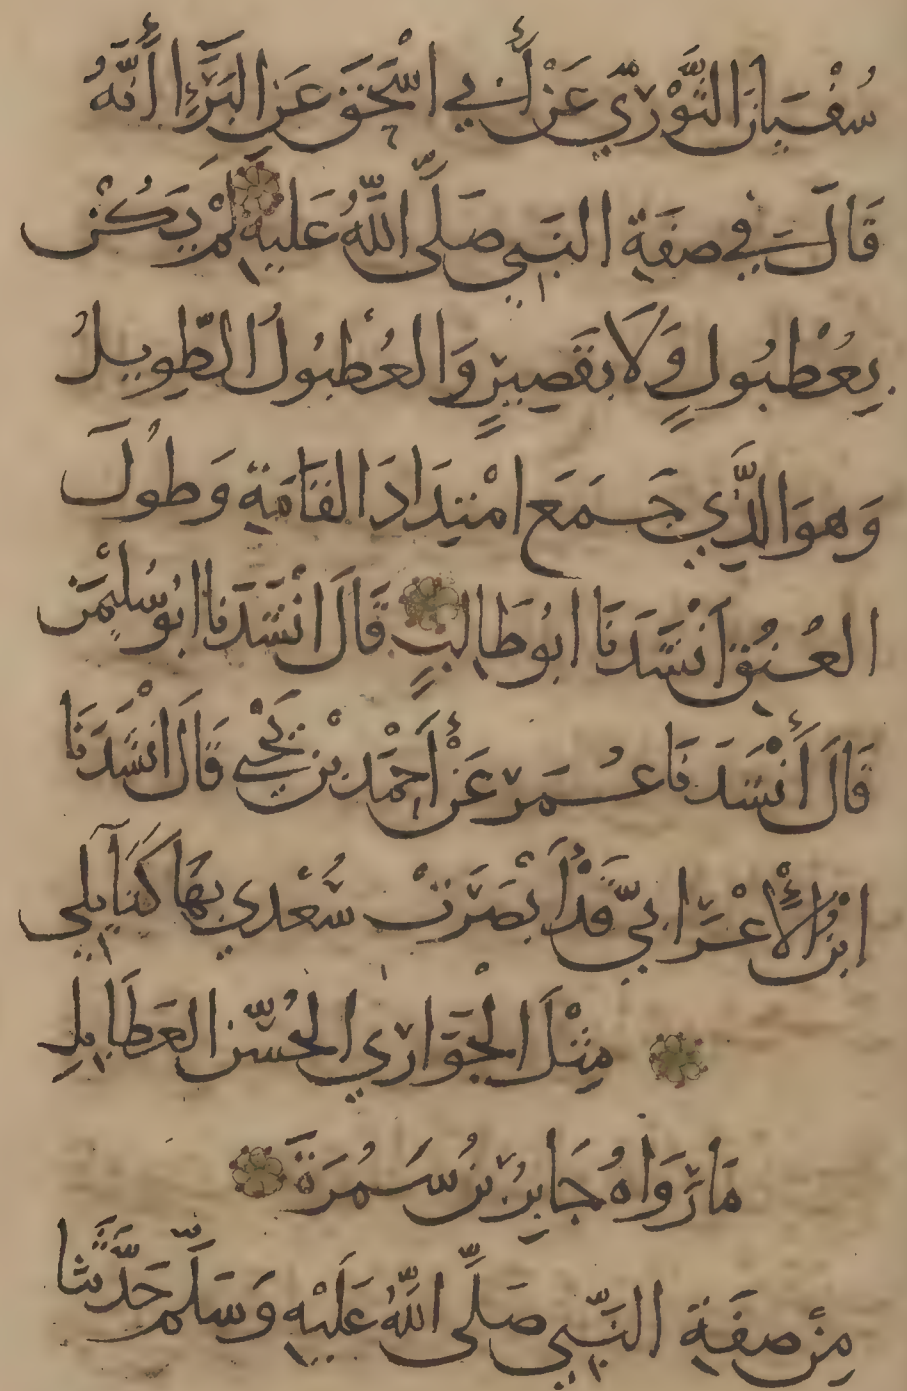 سُفْيَانَ الثَّوْرِيِّ عَنْ أَبِي اسْحَقَ عَنِ البَرَّاءِ أَنَّهُ
قَالَ فِي صِفَةِ النَّبِي صَلَّى اللَّهُ عَلَيْهِ لَمْ يَكُنْ
بِعُطْبُولٍ وَلَا بِقَصِيرٍ وَالعُطْبُولُ الطَّوِيلُ
وَهوَ الَّذِي جَمَعَ امْتِدَادَ القَامَةِ وَطُولَ
العُنُقِ انْشَدَنَا ابُو طَالِبٍ قَالَ انْشَدَنَا ابُو سُلَيْمَن
قَالَ أَنْشَدَنَا عُمَر عَنْ أَحْمَدَ بْنِ يَحْيَى قَالَ انْشَدَنَا
ابْنُ الأَعْرَابِيِّ قَدْ أَبْصَرَتْ سُعْدِي بِهَا كَتَايِلِي
مِثْلَ الجَوَارِي الحُسَّنِ العَطَابِلِ
مَا رَوَاهُ جَابِرُ بْنُ سَمُرَةَ
مِنْ صِفَةِ النَّبِّيِ صَلَّى اللَّهُ عَلَيْهِ وَسَلَّم حَدَّثَنَا